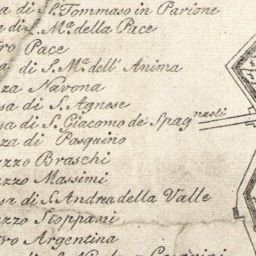 a di S. Tommaso in Parione
e di S. Mª. della Pace
ro Pace
a di S. Mª. dell' Anima
za Navona
sa di S. Agnese
sa di S. Giacomo de Spagnuoli
za di Pasquino
azzo Braschi
azzo Massimi
sa di S. Andrea della Valle
azzo Stoppani
ro Argentina